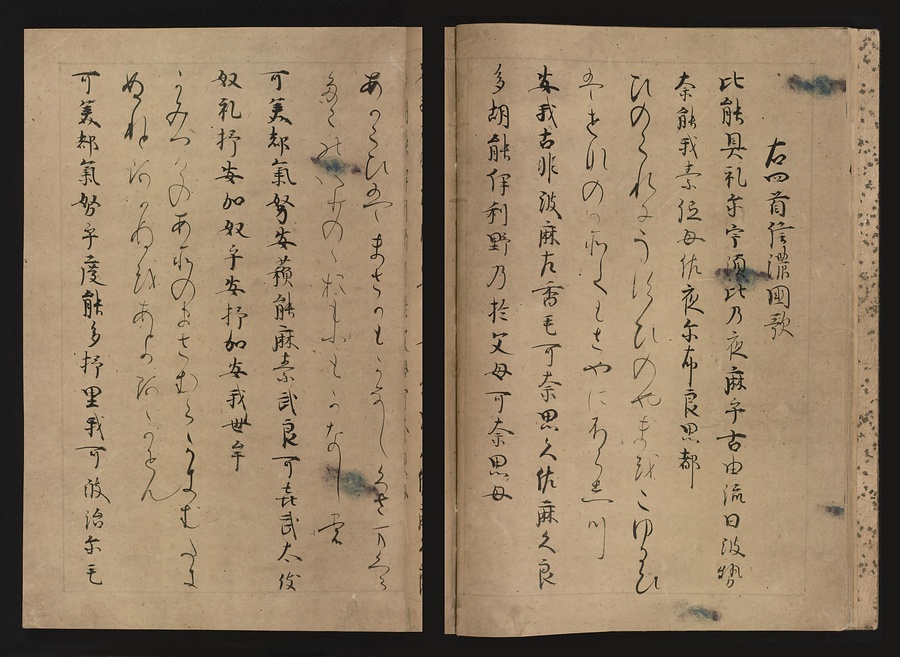 右四首信濃國歌
比能具礼尓宇須比乃夜麻乎古由流日波勢
奈能我素伝母佐夜尓布良思都
ひのくれにうすひのやまをこゆるひ
はせなのかそてもさやにふらしつ
安我古非波麻左香毛可奈思久佐麻久良
多胡能伊利野乃於父母可奈思母
あかこひはまさかもかなしくさまくら
たこのいりのゝ おもかなし
可美都氣努安蘓能麻素武良可㐂武太伎
奴礼抒安加奴乎安抒加安我世牟
かみつけのあそのまそむらかきむたき
ぬれとあかぬをあとかあかせん
可美都氣努乎度能多抒里我可波治尓毛